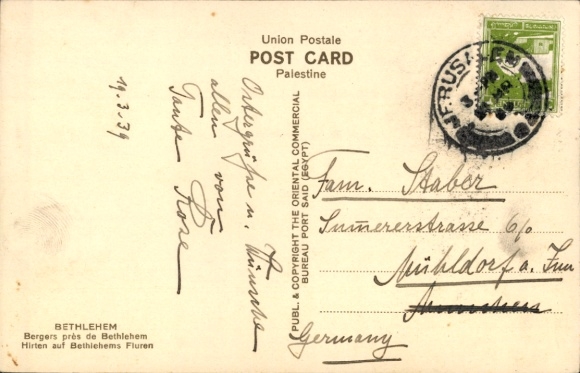 Union Postale
POST CARD
Palestine
JERUSALEM
19.3.39
Ostergrüße u. Wünsche
allen von
Tante Rose
PUBL. & COPYRIGHT THE ORIENTAL COMMERCIAL
BUREAU PORT SAID (EGYPT)
Fam. Staber
Sum̄ererstrasse 6/0
Mühldorf a. Inn
Germany
BETHLEHEM
Bergers près de Bethlehem
Hirten auf Bethlehems Fluren